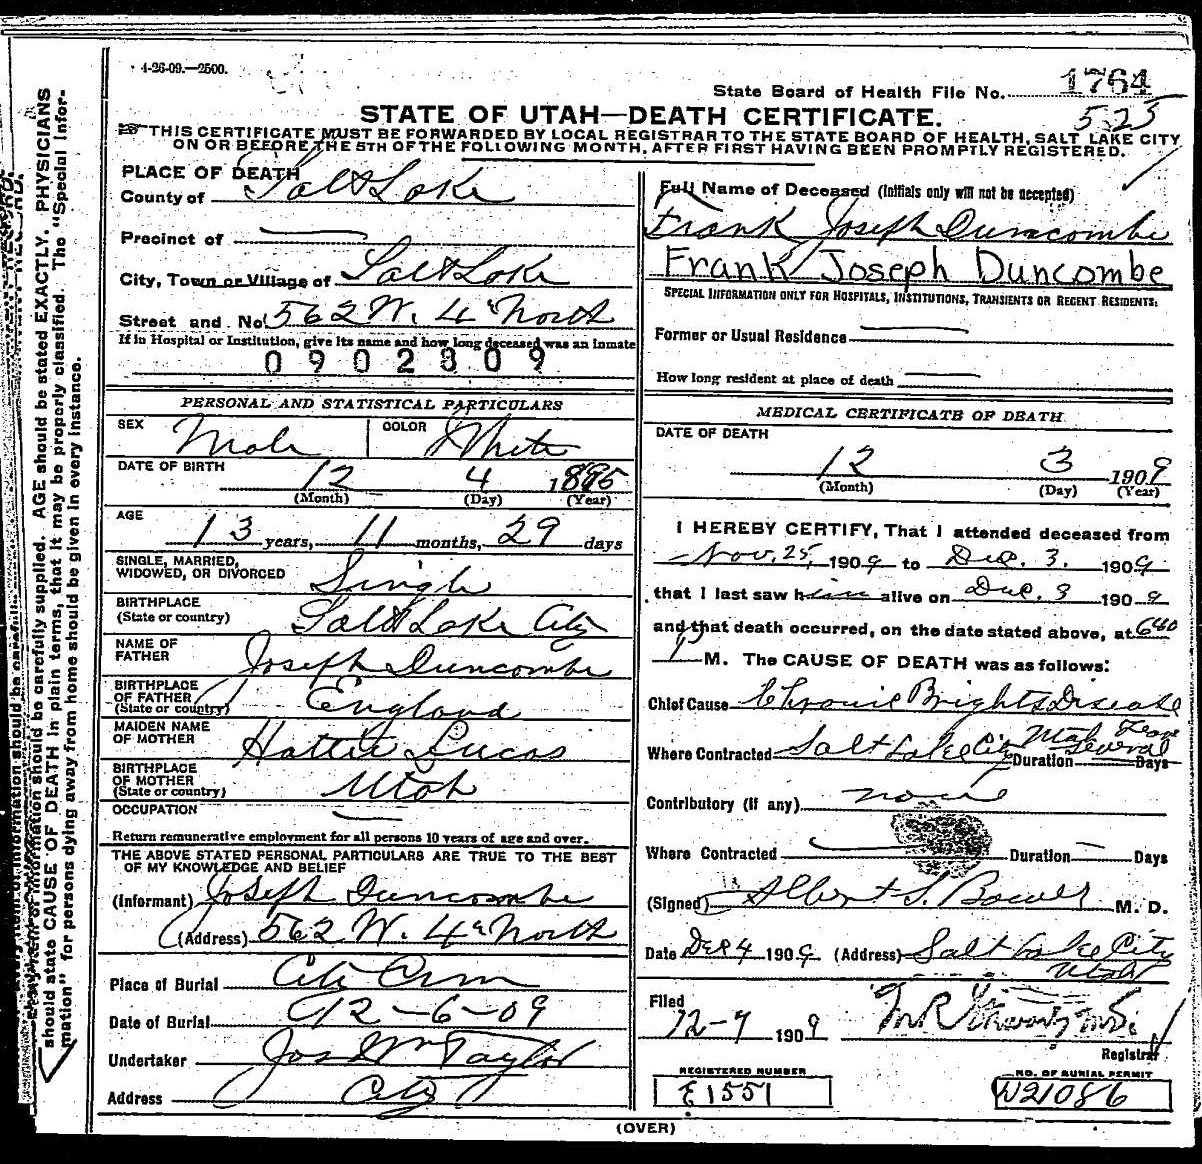 4-26-09.—2500.
State Board of Health File No. 1764
525
STATE OF UTAH—DEATH CERTIFICATE.
THIS CERTIFICATE MUST BE FORWARDED BY LOCAL REGISTRAR TO THE STATE BOARD OF HEALTH, SALT LAKE CITY
ON OR BEFORE THE 5TH OF THE FOLLOWING MONTH, AFTER FIRST HAVING BEEN PROMPTLY REGISTERED.
PLACE OF DEATH
County of Salt Lake
Precinct of
City, Town or Village of Salt Lake
Street and No. 562 W. 4th North
If in Hospital or Institution, give its name and how long deceased was an inmate
0902309
PERSONAL AND STATISTICAL PARTICULARS
SEX Male COLOR White
DATE OF BIRTH 12 4 1895
(Month) (Day) (Year)
AGE
13 years, 11 months, 29 days
SINGLE, MARRIED,
WIDOWED, OR DIVORCED Single
BIRTHPLACE
(State or country) Salt Lake City
NAME OF
FATHER Joseph Duncombe
BIRTHPLACE
OF FATHER
(State or country) England
MAIDEN NAME
OF MOTHER Hattie Lucas
BIRTHPLACE
OF MOTHER
(State or country) Utah
OCCUPATION
Return remunerative employment for all persons 10 years of age and over.
THE ABOVE STATED PERSONAL PARTICULARS ARE TRUE TO THE BEST
OF MY KNOWLEDGE AND BELIEF
(Informant) Joseph Duncombe
(Address) 562 W. 4th North
Place of Burial City Cem
Date of Burial 12-6-09
Undertaker Jos Wm Taylor
Address City
Full Name of Deceased (Initials only will not be accepted)
Frank Joseph Duncombe
Frank Joseph Duncombe
SPECIAL INFORMATION ONLY FOR HOSPITALS, INSTITUTIONS, TRANSIENTS OR RECENT RESIDENTS:
Former or Usual Residence
How long resident at place of death
MEDICAL CERTIFICATE OF DEATH
DATE OF DEATH
12 3 1909
(Month) (Day) (Year)
I HEREBY CERTIFY, That I attended deceased from
Nov. 25, 1909 to Dec. 3. 1909
that I last saw him alive on Dec. 3 1909
and that death occurred, on the date stated above, at 640
P M. The CAUSE OF DEATH was as follows:
Chief Cause Chronic Brights Disease
Where Contracted Salt Lake City Utah Duration Several Years Days
Contributory (if any) none
Where Contracted Duration Days
(Signed) Albert S. Bower M. D.
Date Dec 4 1909 (Address) Salt Lake City
Utah
Filed
12-7 1909
Registrar
REGISTERED NUMBER
E1551
NO. OF BURIAL PERMIT
W21086
(OVER)
should be carefully supplied. AGE should be stated EXACTLY. PHYSICIANS
should state CAUSE OF DEATH in plain terms, that it may be properly classified. The "Special Infor-
mation" for persons dying away from home should be given in every instance.